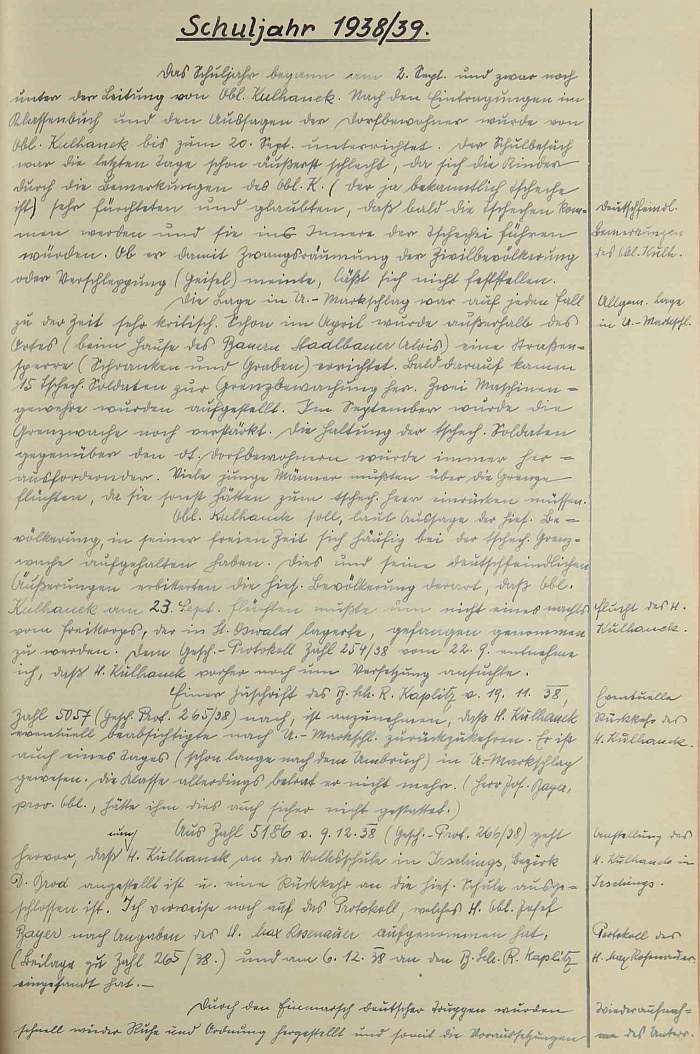 Schuljahr 1938/39.
Das Schuljahr begann am 2. Sept. und zwar noch
unter der Leitung von Obl. Kulhanek. Nach den Eintragungen im
Klassenbuch und den Aussagen der Dorfbewohner wurde von
Obl. Kulhanek bis zum 20. Sept. unterrichtet. Der Schulbesuch
war die letzten Tage schon äußerst schlecht, da sich die Kinder
durch die Bemerkungen des Obl. K. (der ja bekanntlich Tscheche
ist) sehr fürchteten und glaubten, daß bald die Tschechen kom-
men werden und sie ins Innere der Tschechei führen
würden. Ob er damit Zwangsräumung der Zivilbevölkerung
oder Verschleppung (Geisel) meinte, läßt sich nicht feststellen.
Deutschfeindl.
Bemerkungen
des Obl. Kulh.
Die Lage in U.-Markschlag war auf jeden Fall
zu der Zeit sehr kritisch. Schon im April wurde außerhalb des
Ortes (beim Hause des Bauern Stadlbauer Alois) eine Straßen-
sperre (Schranken und Graben) errichtet. Bald darauf kamen
15 tschech. Soldaten zur Grenzbewachung her. Zwei Maschinen-
gewehre wurden aufgestellt. Im September wurde die
Grenzwache noch verstärkt. Die Haltung der tschech. Soldaten
gegenüber den dt. Dorfbewohnern wurde immer her-
ausfordernder. Viele junge Männer mußten über die Grenze
flüchten, da sie sonst hätten zum tschech. Heer einrücken müssen.
Allgem. Lage
in U.-Markschl.
Obl. Kulhanek soll, laut Aussage der hies. Be-
völkerung, in seiner freien Zeit sich häufig bei der tschech. Grenz-
wache aufgehalten haben. Dies und seine deutschfeindlichen
Äußerungen erbitterten die hies. Bevölkerung derart, daß Obl.
Kulhanek am 23. Sept. flüchten mußte um nicht eines nachts
vom Freikorps, der in St. Oswald lagerte, gefangen genommen
zu werden. Dem Gesch.-Protokoll Zahl 254/38 vom 22. 9. entnehme
ich, daß H. Kulhanek vorher noch um Versetzung ansuchte.
Flucht des H.
Kulhanek.
Einer Zuschrift des B. Sch. R. Kaplitz v. 19. 11. 38,
Zahl 5057 (Gesch. Prot. 265/38) nach, ist anzunehmen, daß H. Kulhanek
eventuell beabsichtigte nach U.-Markschl. zurückzukehren. Er ist
auch eines Tages (schon lange nach dem Umbruch) in U.-Markschlag
gewesen. Die Klasse allerdings betrat er nicht mehr. (Herr Jos. Bayer,
prov. Obl., hätte ihm dies auch sicher nicht gestattet.)
Eventuelle
Rückkehr des
H. Kulhanek.
Aus Zahl 5186 v. 9. 12. 38 (Gesch.-Prot. 266/38) geht
nun
hervor, daß H. Kulhanek an der Volksschule in Irschings, Bezirk
D. Brod angestellt ist u. eine Rückkehr an die hies. Schule ausge-
schlossen ist. Ich verweise noch auf das Protokoll, welches H. Obl. Josef
Bayer nach Angaben des H. Max Rosenauer aufgenommen hat,
(Beilage zu Zahl 265/38.) und am 6. 12. 38 an den B. Sch. R. Kaplitz
eingesandt hat.-
Anstellung des
H. Kulhanek in
Irschings.
Protokoll des
H. Max Rosenauer.
Durch den Einmarsch deutscher Truppen wurden
schnell wieder Ruhe und Ordnung hergestellt und somit die Voraussetzungen
Wiederaufnah-
me des Unterr.